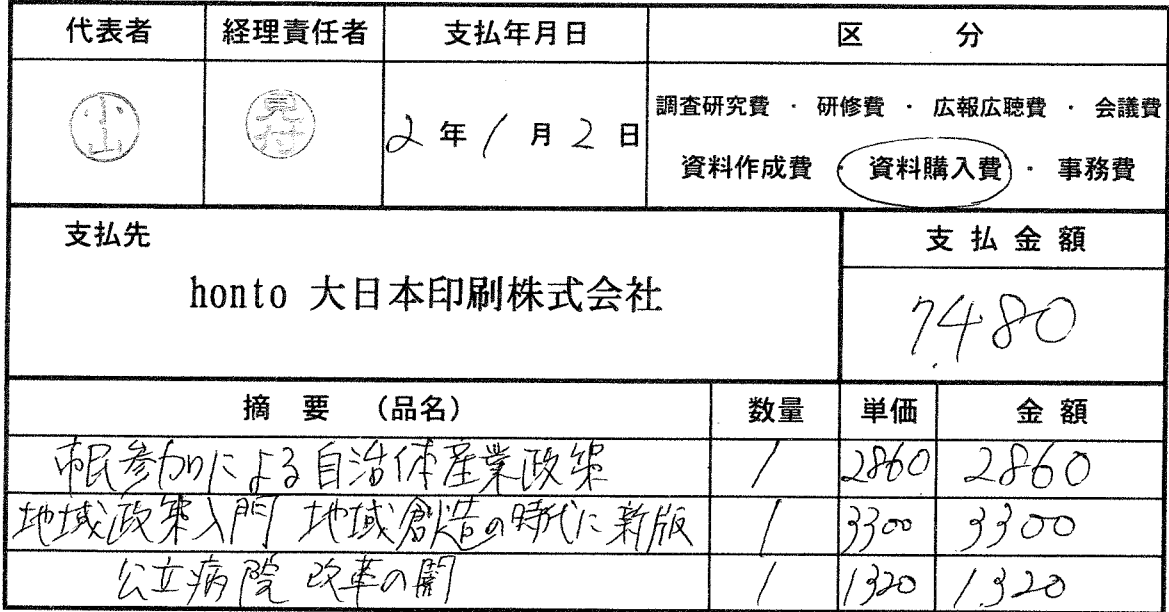 代表者 経理責任者 支払年月日 区 分
小山 見付 2年1月2日
調査研究費 ・ 研修費 ・ 広報広聴費 ・ 会議費
資料作成費 ・ 資料購入費 ・ 事務費
支払先 支払金額
honto 大日本印刷株式会社 7,480
摘要 (品名) 数量 単価 金額
市民参加による自治体産業政策 1 2860 2860
地域政策入門 地域創造の時代に 新版 1 3300 3300
公立病院 改革の闇 1 1320 1,320